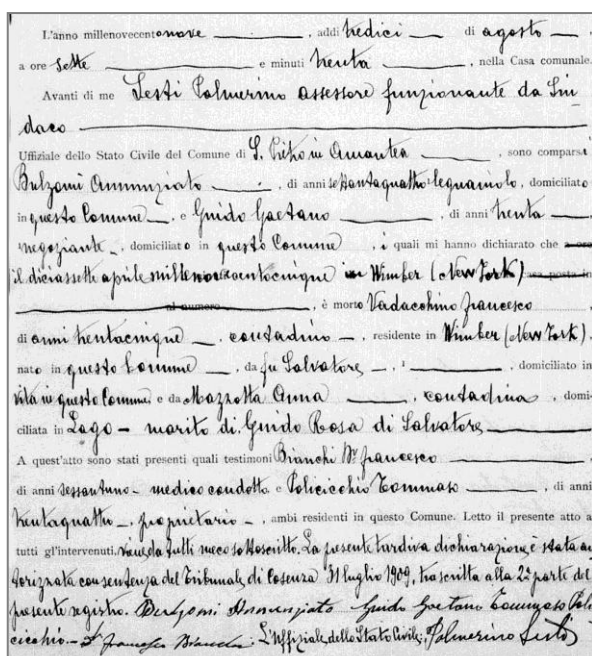 L'anno millenovecentonove, addì tredici di agosto,
a ore sette e minuti trenta, nella Casa comunale.
Avanti di me Sesti Palmerino assessore funzionante da Sin-
daco
Uffiziale dello Stato Civile del Comune di S. Pietro in Amantea, sono comparsi
Bulzomi Annunziato, di anni settantaquattro legnaiuolo, domiciliato
in questo Comune, e Guido Gaetano, di anni trenta
negoziante, domiciliato in questo Comune, i quali mi hanno dichiarato che a ore
il diciassette aprile millenovecentocinque in Wimber (New York) posta in
al numero, è morto Vadacchino Francesco
di anni trentacinque, contadino, residente in Wimber (New York),
nato in questo Comune, da fu Salvatore, domiciliato in
vita in questo Comune e da Mazzotta Anna, contadina, domi-
ciliata in Lago - marito di Guido Rosa di Salvatore
A quest'atto sono stati presenti quali testimoni Bianchi Dr Francesco
di anni sessantuno - medico condotto e Policicchio Tommaso, di anni
trentaquattro, proprietario, ambi residenti in questo Comune. Letto il presente atto a
tutti gl'intervenuti, viene da tutti meco sottoscritto. La presente tardiva dichiarazione è stata au
torizzata con sentenza del Tribunale di Cosenza 31 luglio 1909, trascritta alla 2a parte del
presente registro. Bulzomi Annunziato Guido Gaetano Tommaso Poli
cicchio. - Dr Francesco Bianchi L'Uffiziale dello Stato Civile: Palmerino Sesti